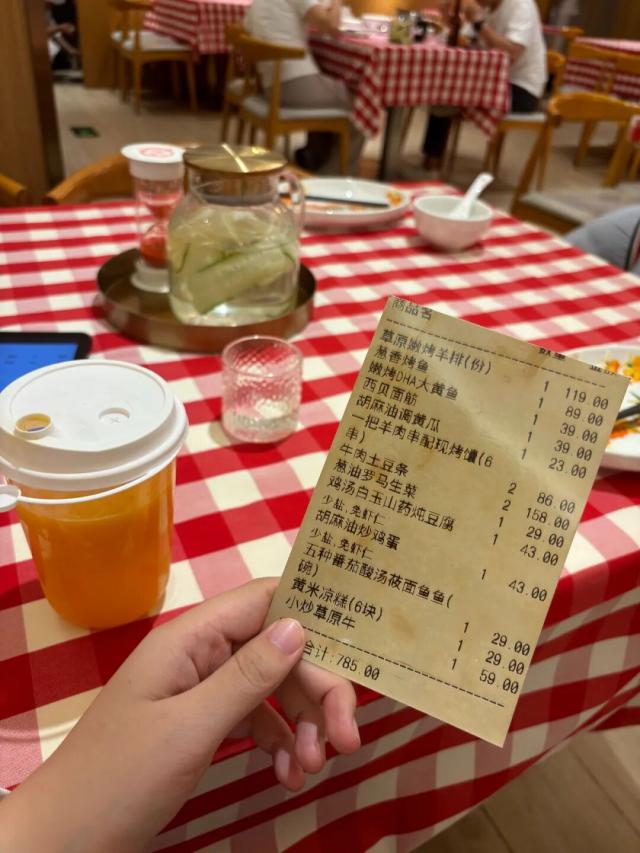 商品名 数量
草原嫩烤羊排(份) 1 119.00
葱香烤鱼 1 89.00
嫩烤DHA大黄鱼 1 39.00
西贝面筋 1 39.00
胡麻油调黄瓜 1 23.00
一把羊肉串配现烤馕(6
串) 2 86.00
牛肉土豆条 2 158.00
葱油罗马生菜 1 29.00
鸡汤白玉山药炖豆腐 1 43.00
少盐,免虾仁
胡麻油炒鸡蛋 1 43.00
少盐,免虾仁
五种番茄酸汤莜面鱼鱼(
碗) 1 29.00
黄米凉糕(6块) 1 29.00
小炒草原牛 1 59.00
合计:785.00